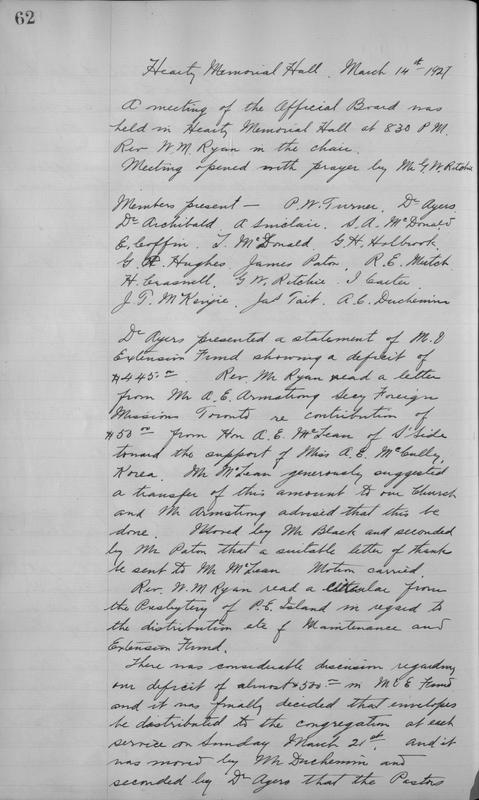 62
Heartz Memorial Hall. March 14th 1927
A meeting of the Official Board was
held in Heartz Memorial Hall at 8.30 P.M.
Rev W.M. Ryan in the chair.
Meeting opened with prayer by Mr G.W. Ritchie
Members present — P.W. Turner. Dr Ayers,
Dr Archibald. A Sinclair. S.A. McDonald
E. Coffin. T. McDonald. G.H. Holbrook.
G. R. Hughes. James Paton. R.E. Mutch.
H. Craswell. G.W. Ritchie. I Carter.
J.T. McKenzie. Jas Tait. A.C. Duchemin
Dr Ayers presented a statement of M. &
Extension Fund showing a deficit of
$445.00. Rev. Mr Ryan read a letter
from Mr A.E. Armstrong Secy Foreign
Missions Toronto re contribution of
$50 00 from Hon A.E. McLean of S'Side
toward the support of Miss A.E. McCully,
Korea. Mr McLean generously suggested
a transfer of this amount to our Church
and Mr Armstrong advised that this be
done. Moved by Mr Black and seconded
by Mr Paton that a suitable letter of thanks
be sent to Mr McLean Motion carried.
Rev. W.M Ryan read a circular from
the Presbytery of P.E. Island in regard to
the distribution etc of Maintenance and
Extension Fund.
There was considerable discussion regarding
our deficit of almost $500.— in M & E Fund
and it was finally decided that envelopes
be distributed to the congregation at each
service on Sunday March 21st. and it
was moved by Mr Duchemin and
seconded by Dr Ayers that the Pastors